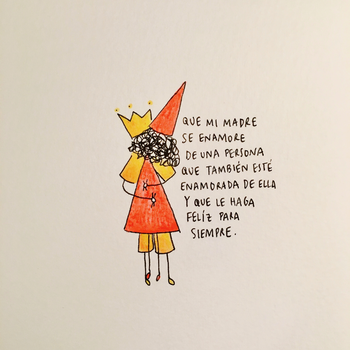 QUE MI MADRE
SE ENAMORE
DE UNA PERSONA
QUE TAMBIÉN ESTÉ
ENAMORADA DE ELLA
Y QUE LE HAGA
FELÍZ PARA
SIEMPRE.